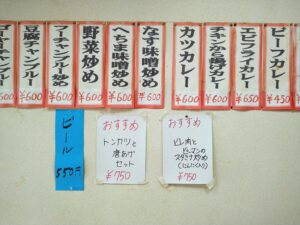 ビーフカレー
¥450
エビフライカレー
¥650
チキンから揚げカレー
¥600
カツカレー
¥600
なす味噌炒め
¥600
へちま味噌炒め
¥600
野菜炒め
¥600
フーチャンプルー炒め
¥600
豆腐チャンプルー
¥600
チャンプルー
¥600
ビール
550円
おすすめ
トンカツと
唐あげ
セット
¥750
おすすめ
ヒレ肉と
ピーマンの
スタミナ炒め
(にんにく入り)
¥750